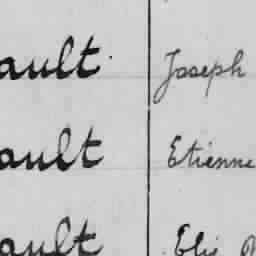 ault Joseph
ault Etienne
ault Elie